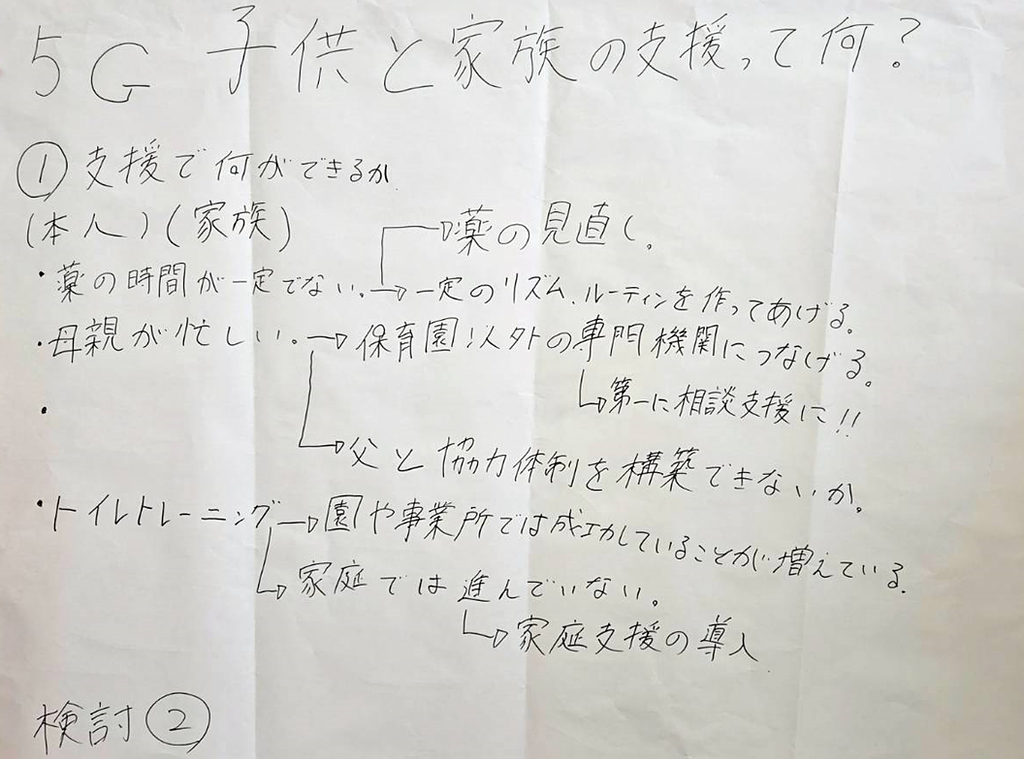 5G 子供と家族の支援って何?
① 支援で何ができるか
(本人)(家族)
→薬の見直し。
・薬の時間が一定でない。→一定のリズム、ルーティンを作ってあげる。
・母親が忙しい。→保育園以外の専門機関につなげる。
→第一に相談支援に!!
・
→父と協力体制を構築できないか。
・トイレトレーニング→園や事業所では成功していることが増えている。
→家庭では進んでいない。
→家庭支援の導入
検討②